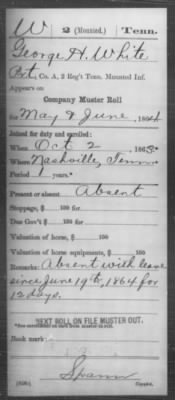 W 2 (Mounted.) Tenn.
George H. White
Pvt., Co. A, 2 Reg't Tenn. Mounted Inf.
Appears on
Company Muster Roll
for May & June, 1864
Joined for duty and enrolled:
When Oct 2, 1863
Where Nashville, Tenn
Period 1 years.*
Present or absent Absent
Stoppage, $ 100 for
Due Gov't $ 100 for
Valuation of horse, $ 100
Valuation of horse equipments, $ 100
Remarks: Absent with leave
since June 19th, 1864 for
12 days.
NEXT ROLL ON FILE MUSTER OUT.
Book mark:
Spann
Copyist.